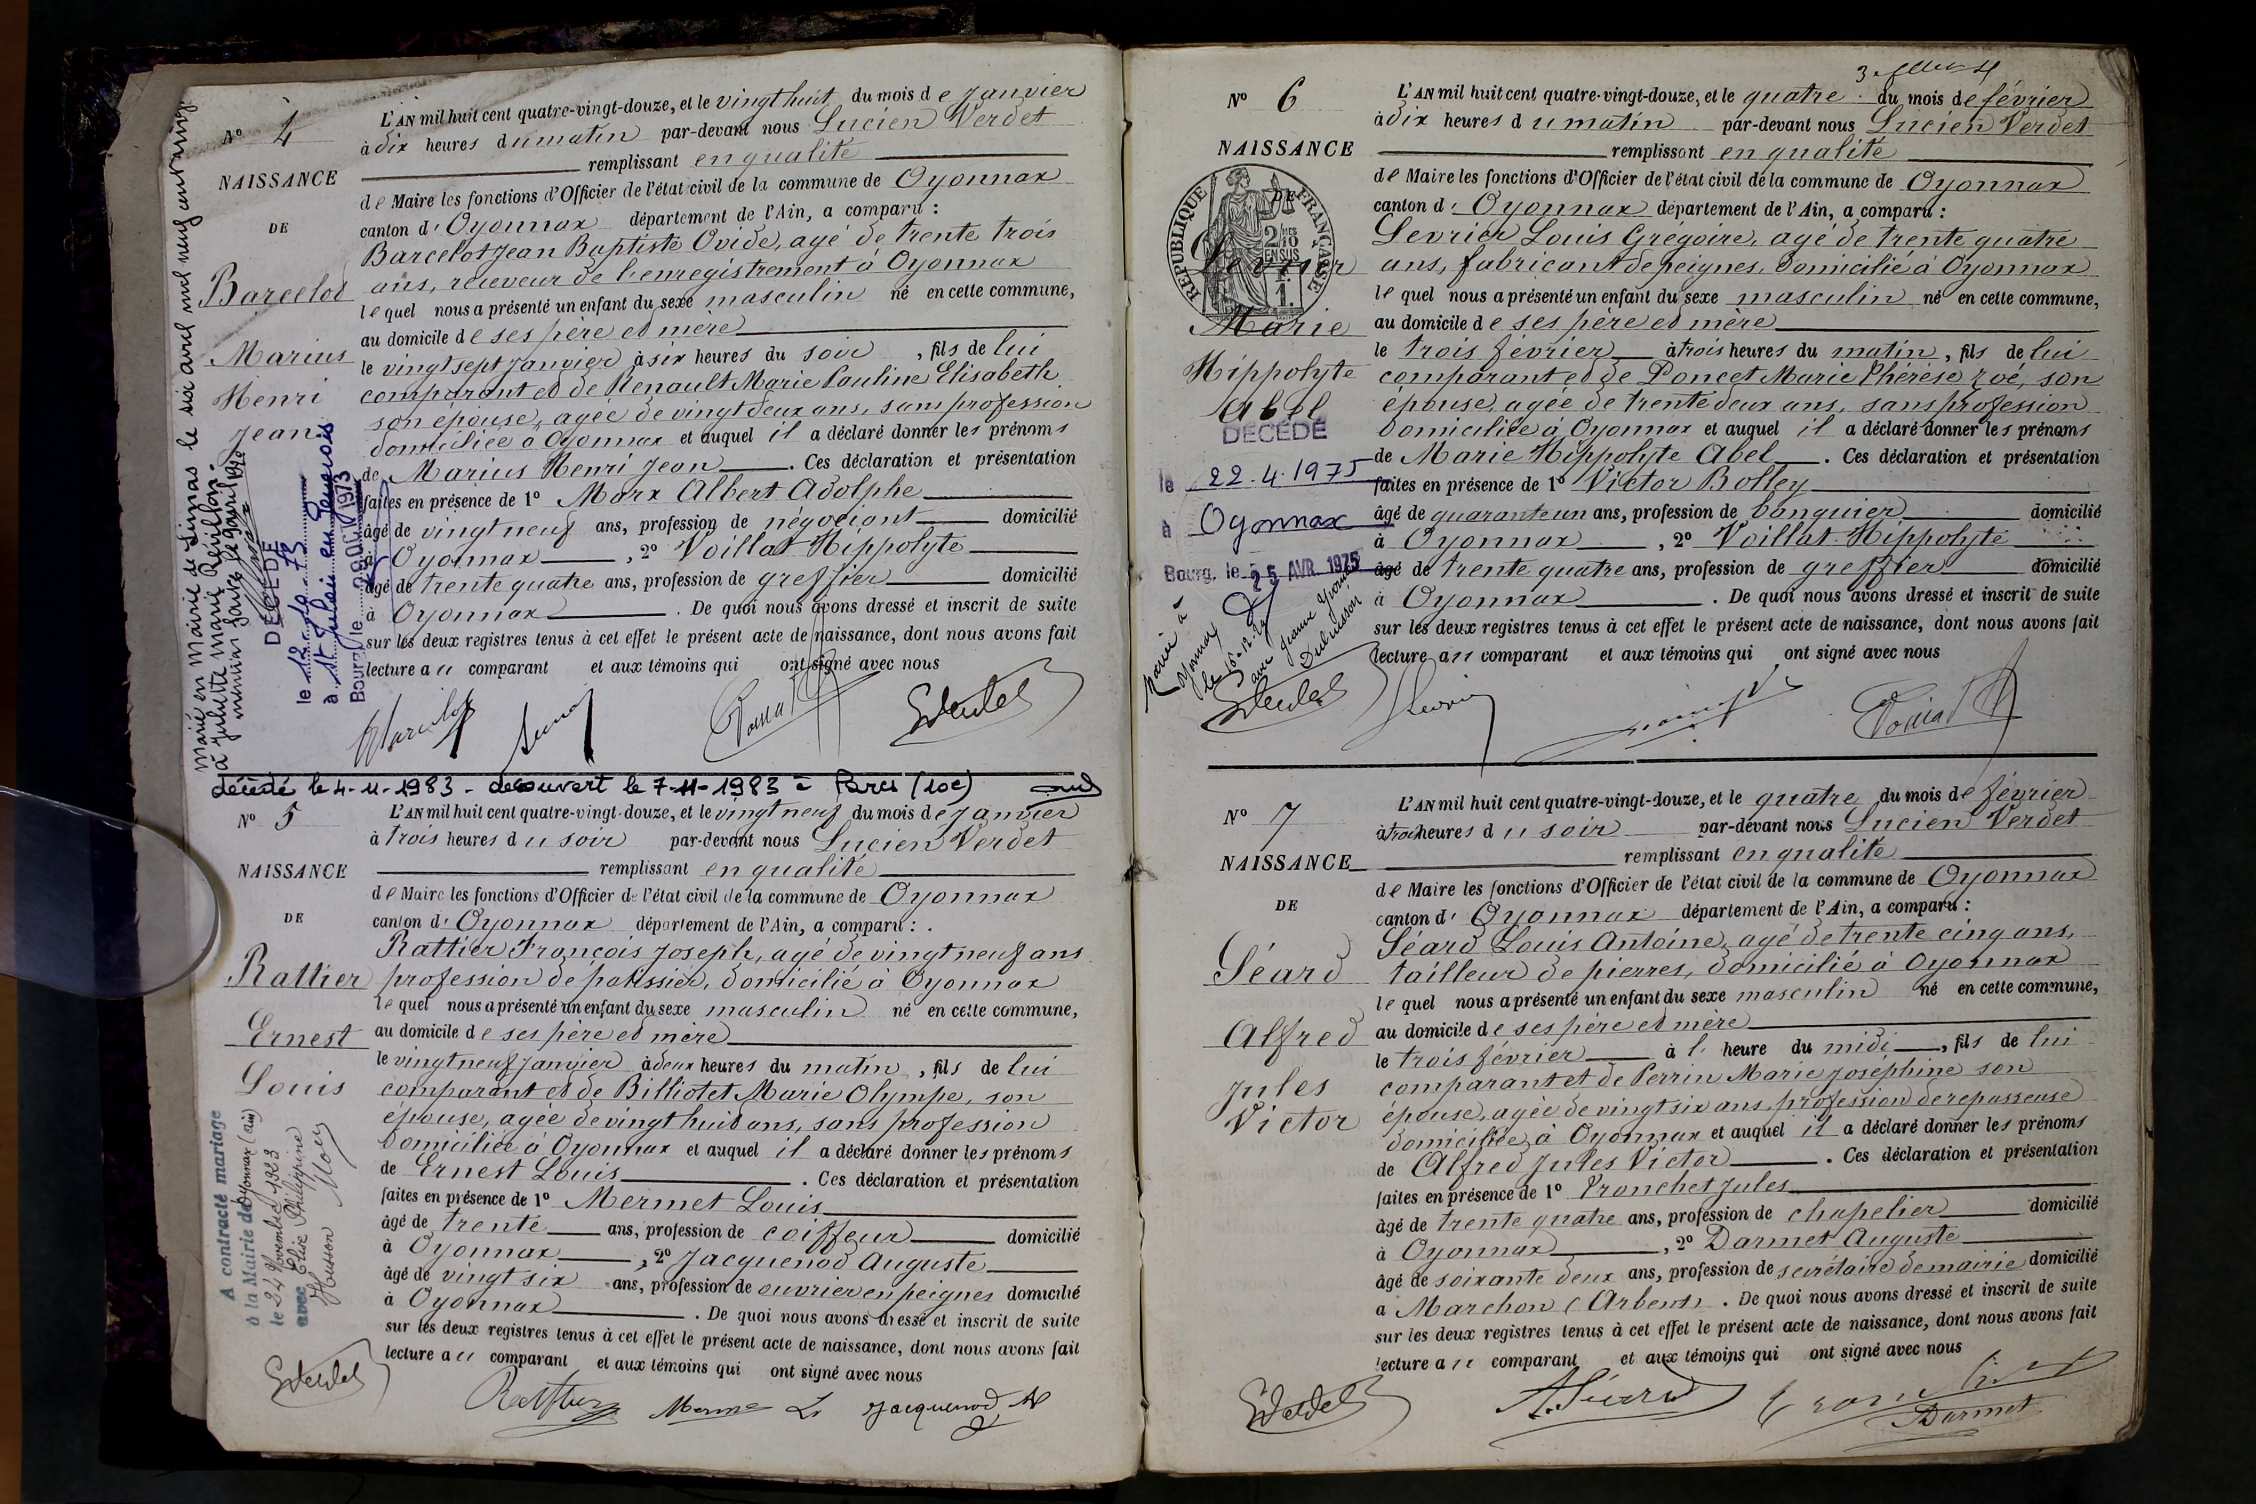 N° 4
NAISSANCE
DE
Barcelot
Marius
Henri
Jean
L'AN mil huit cent quatre-vingt-douze, et le vingt huit du mois de janvier
à dix heures du matin par-devant nous Lucien Verdet
remplissant en qualité
de Maire les fonctions d'Officier de l'état civil de la commune de Oyonnax
canton d'Oyonnax département de l'Ain, a comparu :
Barcelot Jean Baptiste Ovide, agé de trente trois
ans, receveur de l'enregistrement à Oyonnax
lequel nous a présenté un enfant du sexe masculin né en cette commune,
au domicile de ses père et mère
le vingt sept janvier à six heures du soir, fils de lui
comparant et de Renault Marie Pauline Elisabeth
son épouse, agée de vingt deux ans, sans profession
domiciliée à Oyonnax et auquel il a déclaré donner les prénoms
de Marius Henri Jean. Ces déclaration et présentation
faites en présence de 1° Marx Albert Adolphe
âgé de vingt neuf ans, profession de négociant domicilié
à Oyonnax, 2° Voillat Hippolyte
âgé de trente quatre ans, profession de greffier domicilié
à Oyonnax. De quoi nous avons dressé et inscrit de suite
sur les deux registres tenus à cet effet le présent acte de naissance, dont nous avons fait
lecture au comparant et aux témoins qui ont signé avec nous
Marié en mairie de le six avril mil neuf cent
à Juliette Marie Révillon.
DÉCÉDÉ
le 12.10.73
à St Julien en Genevois
Bourg, le 29 OCT 1973
décédé le 4-11-1983 - découvert le 7-11-1983 à Paris (10e)
N° 5
NAISSANCE
DE
Rattier
Ernest
Louis
L'AN mil huit cent quatre-vingt-douze, et le vingt neuf du mois de janvier
à trois heures du soir par-devant nous Lucien Verdet
remplissant en qualité
de Maire les fonctions d'Officier de l'état civil de la commune de Oyonnax
canton d'Oyonnax département de l'Ain, a comparu :
Rattier François Joseph, agé de vingt neuf ans
profession de patissier, domicilié à Oyonnax
lequel nous a présenté un enfant du sexe masculin né en cette commune,
au domicile de ses père et mère
le vingt neuf janvier à deux heures du matin, fils de lui
comparant et de Billiotet Marie Olympe, son
épouse, agée de vingt huit ans, sans profession
domiciliée à Oyonnax et auquel il a déclaré donner les prénoms
de Ernest Louis. Ces déclaration et présentation
faites en présence de 1° Mermet Louis
âgé de trente ans, profession de coiffeur domicilié
à Oyonnax, 2° Jacquenod Auguste
âgé de vingt six ans, profession de ouvrier en peignes domicilié
à Oyonnax. De quoi nous avons dressé et inscrit de suite
sur les deux registres tenus à cet effet le présent acte de naissance, dont nous avons fait
lecture au comparant et aux témoins qui ont signé avec nous
A contracté mariage
à la Mairie de Oyonnax (Ain)
le 24 Novembre 1923
avec Elise Philippine
Husson
Jacquenod A
N° 6
NAISSANCE
DE
RÉPUBLIQUE FRANÇAISE
2/10es EN SUS
1F
Sevrier
Marie
Hippolyte
Abel
DÉCÉDÉ
le 22.4.1975
à Oyonnax
Bourg, le 25 AVR. 1975
Marié à
Oyonnax
le 16-12-29
avec Jeanne
Dubuisson
L'AN mil huit cent quatre-vingt-douze, et le quatre du mois de février
à dix heures du matin par-devant nous Lucien Verdet
remplissant en qualité
de Maire les fonctions d'Officier de l'état civil de la commune de Oyonnax
canton d'Oyonnax département de l'Ain, a comparu :
Sevrier Louis Grégoire, agé de trente quatre
ans, fabricant de peignes, domicilié à Oyonnax
lequel nous a présenté un enfant du sexe masculin né en cette commune,
au domicile de ses père et mère
le trois février à trois heures du matin, fils de lui
comparant et de Poncet Marie Thérèse Zoé, son
épouse, agée de trente deux ans, sans profession
domiciliée à Oyonnax et auquel il a déclaré donner les prénoms
de Marie Hippolyte Abel. Ces déclaration et présentation
faites en présence de 1° Victor Bolley
âgé de quarante un ans, profession de banquier domicilié
à Oyonnax, 2° Voillat Hippolyte
âgé de trente quatre ans, profession de greffier domicilié
à Oyonnax. De quoi nous avons dressé et inscrit de suite
sur les deux registres tenus à cet effet le présent acte de naissance, dont nous avons fait
lecture au comparant et aux témoins qui ont signé avec nous
N° 7
NAISSANCE
DE
Séard
Alfred
Jules
Victor
L'AN mil huit cent quatre-vingt-douze, et le quatre du mois de février
à trois heures du soir par-devant nous Lucien Verdet
remplissant en qualité
de Maire les fonctions d'Officier de l'état civil de la commune de Oyonnax
canton d'Oyonnax département de l'Ain, a comparu :
Séard Louis Antoine, agé de trente cinq ans,
tailleur de pierres, domicilié à Oyonnax
lequel nous a présenté un enfant du sexe masculin né en cette commune,
au domicile de ses père et mère
le trois février à l'heure du midi, fils de lui
comparant et de Perrin Marie Joséphine son
épouse, agée de vingt six ans, profession de repasseuse
domiciliée à Oyonnax et auquel il a déclaré donner les prénoms
de Alfred Jules Victor. Ces déclaration et présentation
faites en présence de 1° Pronchet Jules
âgé de trente quatre ans, profession de chapelier domicilié
à Oyonnax, 2° Darmet Auguste
âgé de soixante deux ans, profession de secrétaire de mairie domicilié
à Marchon (Arbent). De quoi nous avons dressé et inscrit de suite
sur les deux registres tenus à cet effet le présent acte de naissance, dont nous avons fait
lecture au comparant et aux témoins qui ont signé avec nous
Darmet